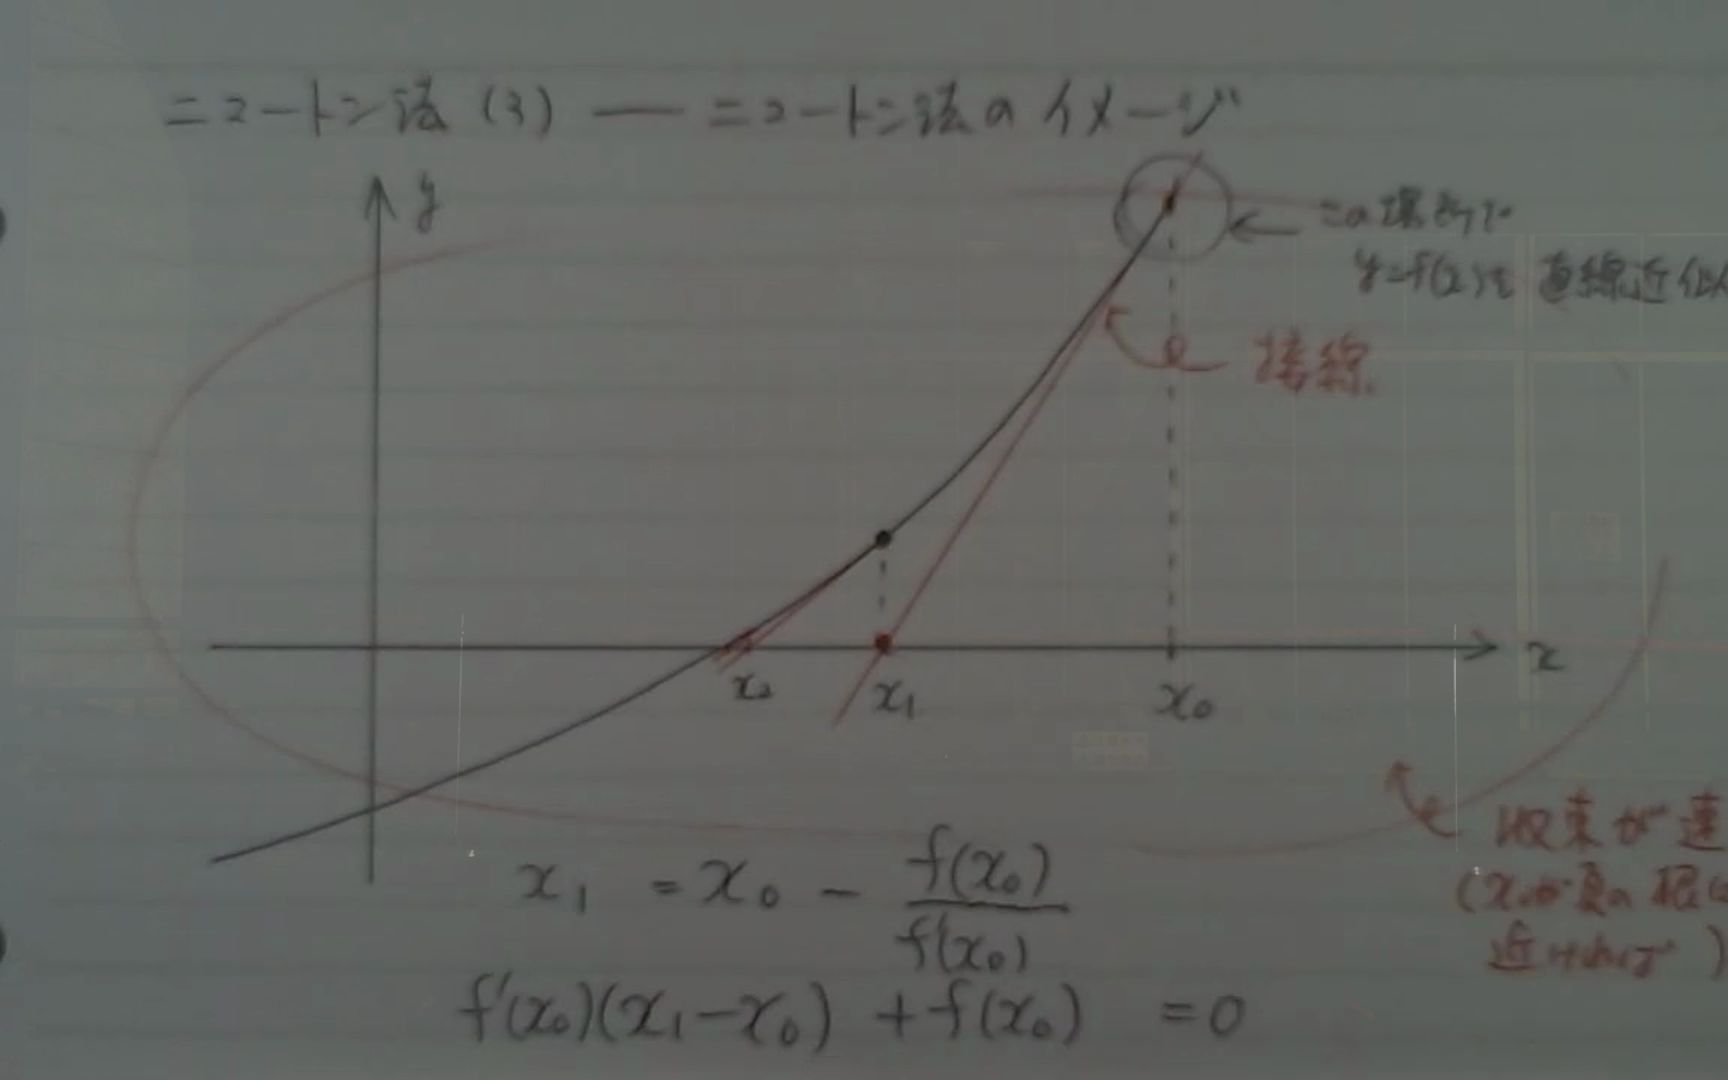 ニュートン法 (3) — ニュートン法のイメージ
y
この場所で
y=f(x)を 直線近似
接線
x₂ x₁ x₀ x
収束が速
(x₀が真の根に
近ければ)
x₁ = x₀ − f(x₀)/f'(x₀)
f'(x₀)(x₁−x₀) + f(x₀) = 0